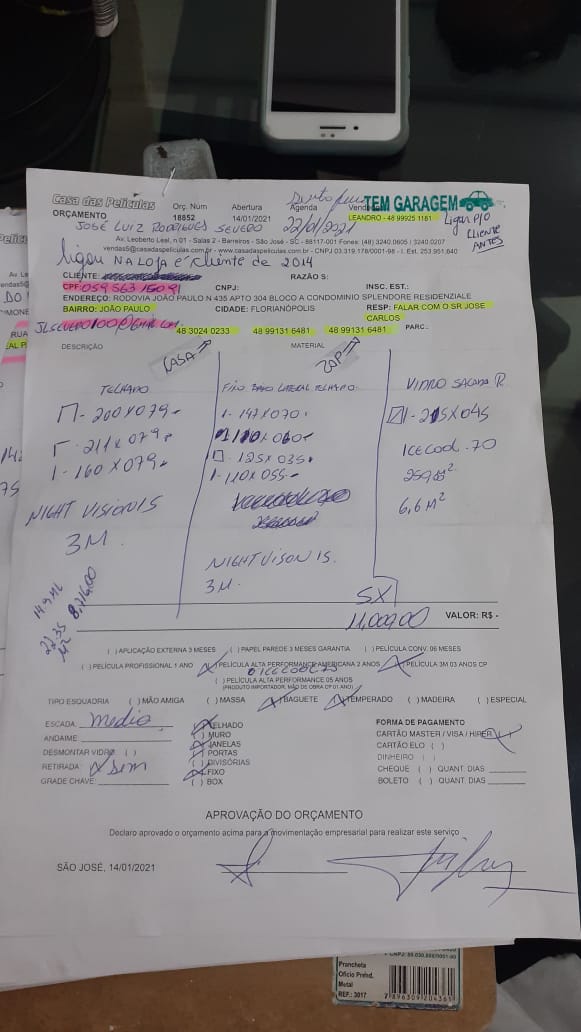 Casa das Películas
Orç. Num Abertura Agenda Vended
TEM GARAGEM
ORÇAMENTO 18852 14/01/2021 22/01/2021
LEANDRO - 48 99925 1181
Ligar p/o
CLIENTE
ANTES
JOSÉ LUIZ RODRIGUES SEVERO
Av. Leoberto Leal, n.01 - Salas 2 - Barreiros - São José - SC - 88117-001 Fones: (48) 3240.0605 / 3240.0207
vendas5@casadaspeliculas.com.br - www.casadaspeliculas.com.br - CNPJ 03.319.178/0001-98 - I. Est. 253.951.640
ligou NA LOJA é cliente de 2014
CLIENTE: RAZÃO S:
CPF: 059 563 150 91 CNPJ: INSC. EST.:
ENDEREÇO: RODOVIA JOÃO PAULO N 435 APTO 304 BLOCO A CONDOMINIO SPLENDORE RESIDENZIALE
BAIRRO: JOÃO PAULO CIDADE: FLORIANÓPOLIS RESP: FALAR COM O SR JOSE
CARLOS
48 3024 0233 48 99131 6481 48 99131 6481 PARC.:
DESCRIÇÃO MATERIAL
CASA ZAP
TELHADO
200X079
211X079
1-160X079
NIGHT VISION 15
3M.
FIXO LATERAL TELHADO
1-147X070
125X035
1-110X055
NIGHT VISON 15.
3M.
VIDRO SACADA R.
1-215X045
ICECOOL.70
6,6 M²
5X
11,000,00 VALOR: R$ -
( ) APLICAÇÃO EXTERNA 3 MESES ( ) PAPEL PAREDE 3 MESES GARANTIA ( ) PELÍCULA CONV. 06 MESES
( ) PELÍCULA PROFISSIONAL 1 ANO (X) PELÍCULA ALTA PERFORMANCE AMERICANA 2 ANOS (X) PELÍCULA 3M 03 ANOS CP
( ) PELÍCULA ALTA PERFORMANCE 05 ANOS
(PRODUTO IMPORTADOR, MÃO DE OBRA CP 01 ANO)
TIPO ESQUADRIA ( ) MÃO AMIGA ( ) MASSA (X) BAGUETE (X) TEMPERADO ( ) MADEIRA ( ) ESPECIAL
ESCADA: Media
ANDAIME:
DESMONTAR VIDRO: ( )
RETIRADA: (X) Sem
GRADE CHAVE:
(X) TELHADO
( ) MURO
(X) JANELAS
( ) PORTAS
( ) DIVISÓRIAS
(X) FIXO
( ) BOX
FORMA DE PAGAMENTO
CARTÃO MASTER / VISA / HIPER (X)
CARTÃO ELO ( )
DINHEIRO ( )
CHEQUE ( ) QUANT. DIAS
BOLETO ( ) QUANT. DIAS
APROVAÇÃO DO ORÇAMENTO
Declaro aprovado o orçamento acima para a movimentação empresarial para realizar este serviço
SÃO JOSÉ, 14/01/2021
Prancheta
Oficio Prend.
Metal
REF.: 3017
7 896309 204365